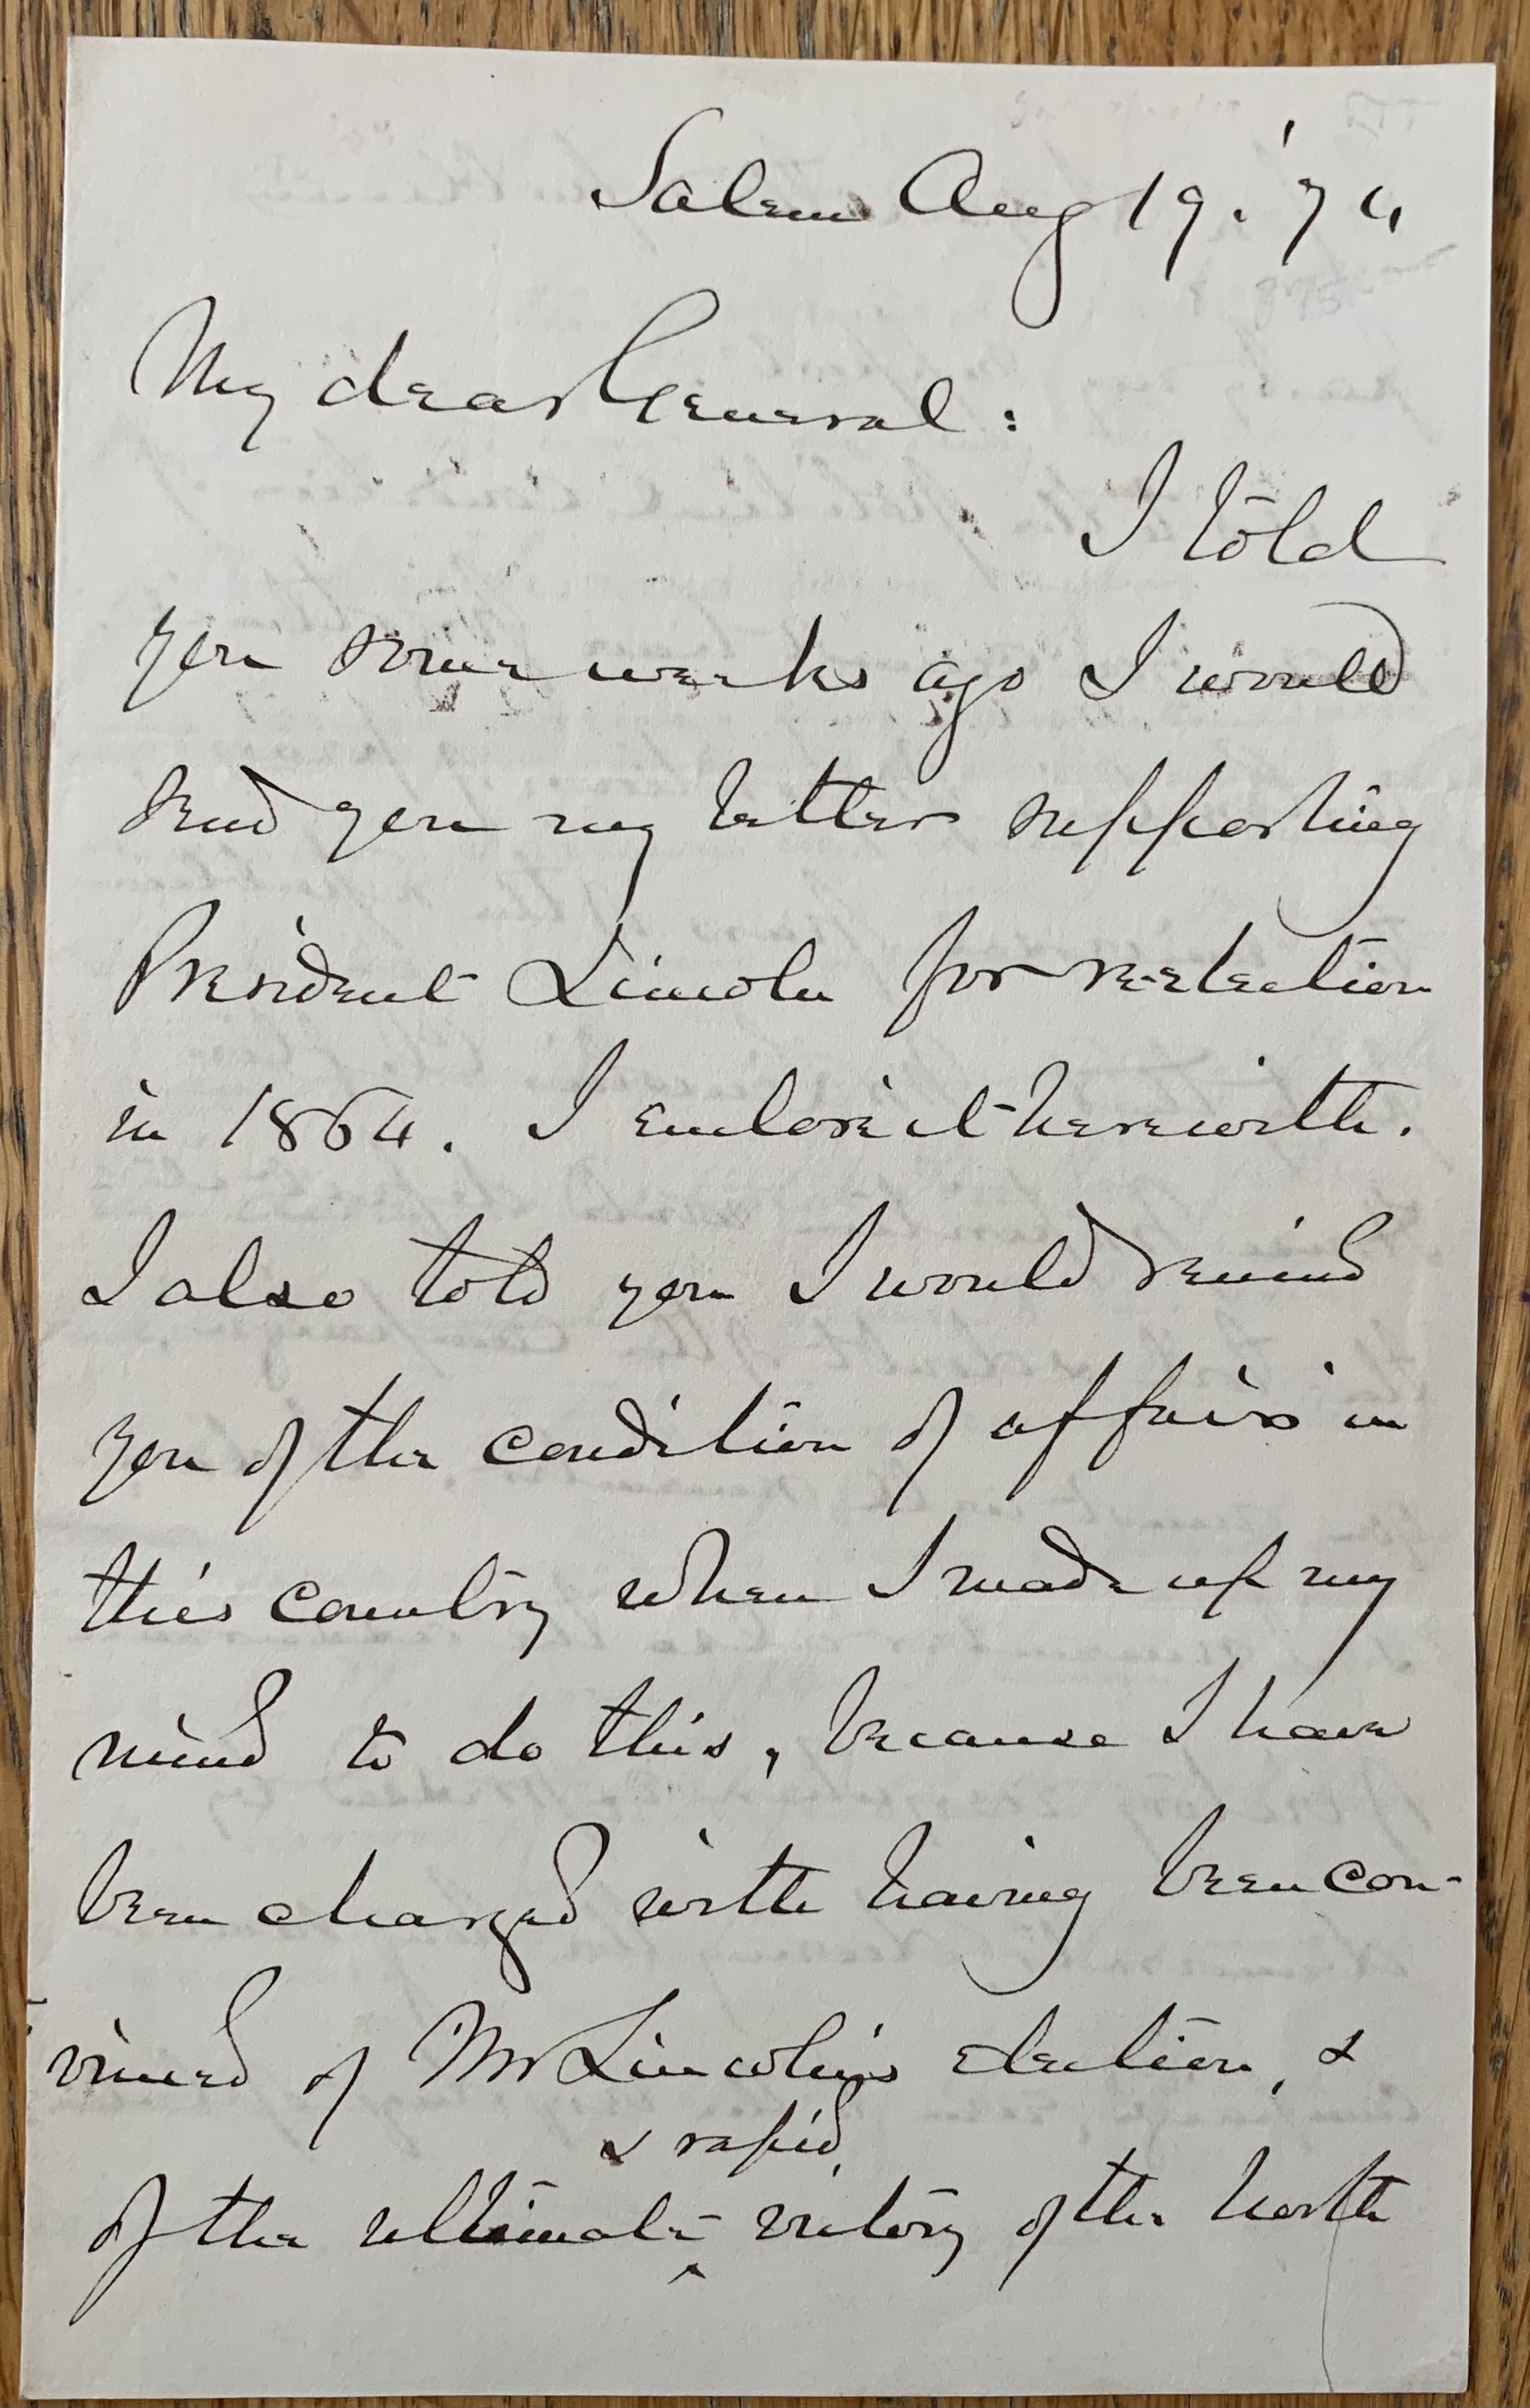 Salem Aug 19. '74
My dear General:
I told
you some weeks ago I would
send you my letter supporting
President Lincoln for re-election
in 1864. I enclose it herewith.
I also told you I would remind
you of the condition of affairs in
this country when I made up my
mind to do this, because I have
been charged with having been con-
vinced of Mr Lincoln's election, &
& rapid
of the ultimate ‸ victory of the North